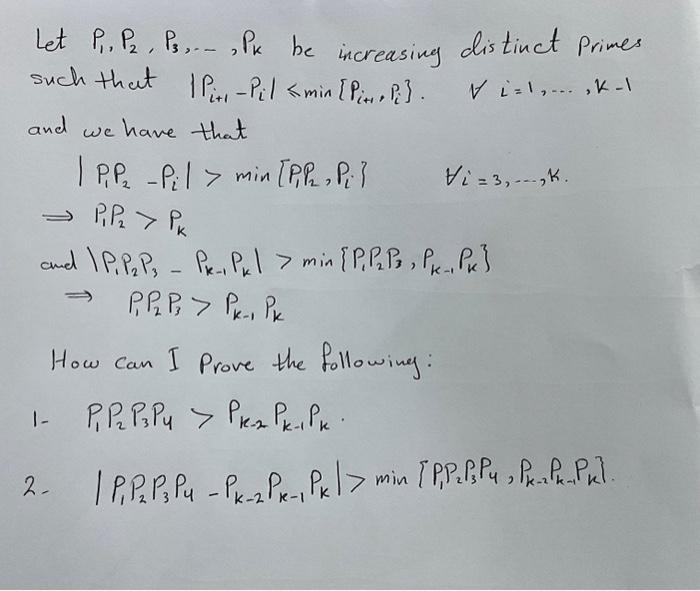 Let P₁, P₂, P₃, ..., Pₖ be increasing distinct Primes
such that |Pᵢ₊₁ - Pᵢ| ≤ min {Pᵢ₊₁, Pᵢ}. ∀ i=1, ..., k-1
and we have that
|P₁P₂ - Pᵢ| > min {P₁P₂, Pᵢ} ∀i=3, ..., k.
⇒ P₁P₂ > Pₖ
and |P₁P₂P₃ - Pₖ₋₁Pₖ| > min {P₁P₂P₃, Pₖ₋₁Pₖ}
⇒ P₁P₂P₃ > Pₖ₋₁ Pₖ
How can I Prove the following:
1- P₁P₂P₃P₄ > Pₖ₋₂Pₖ₋₁Pₖ.
2- |P₁P₂P₃P₄ - Pₖ₋₂Pₖ₋₁Pₖ| > min {P₁P₂P₃P₄, Pₖ₋₂Pₖ₋₁Pₖ}.